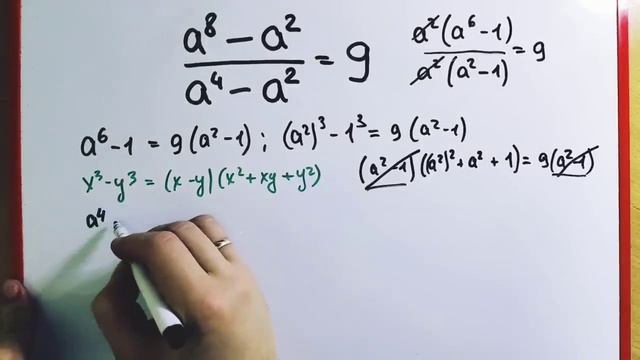 a⁸ − a² / a⁴ − a² = 9
a²(a⁶ − 1) / a²(a² − 1) = 9
a⁶ − 1 = 9(a² − 1) ; (a²)³ − 1³ = 9(a² − 1)
x³ − y³ = (x − y)(x² + xy + y²)
(a² − 1)((a²)² + a² + 1) = 9(a² − 1)
a⁴